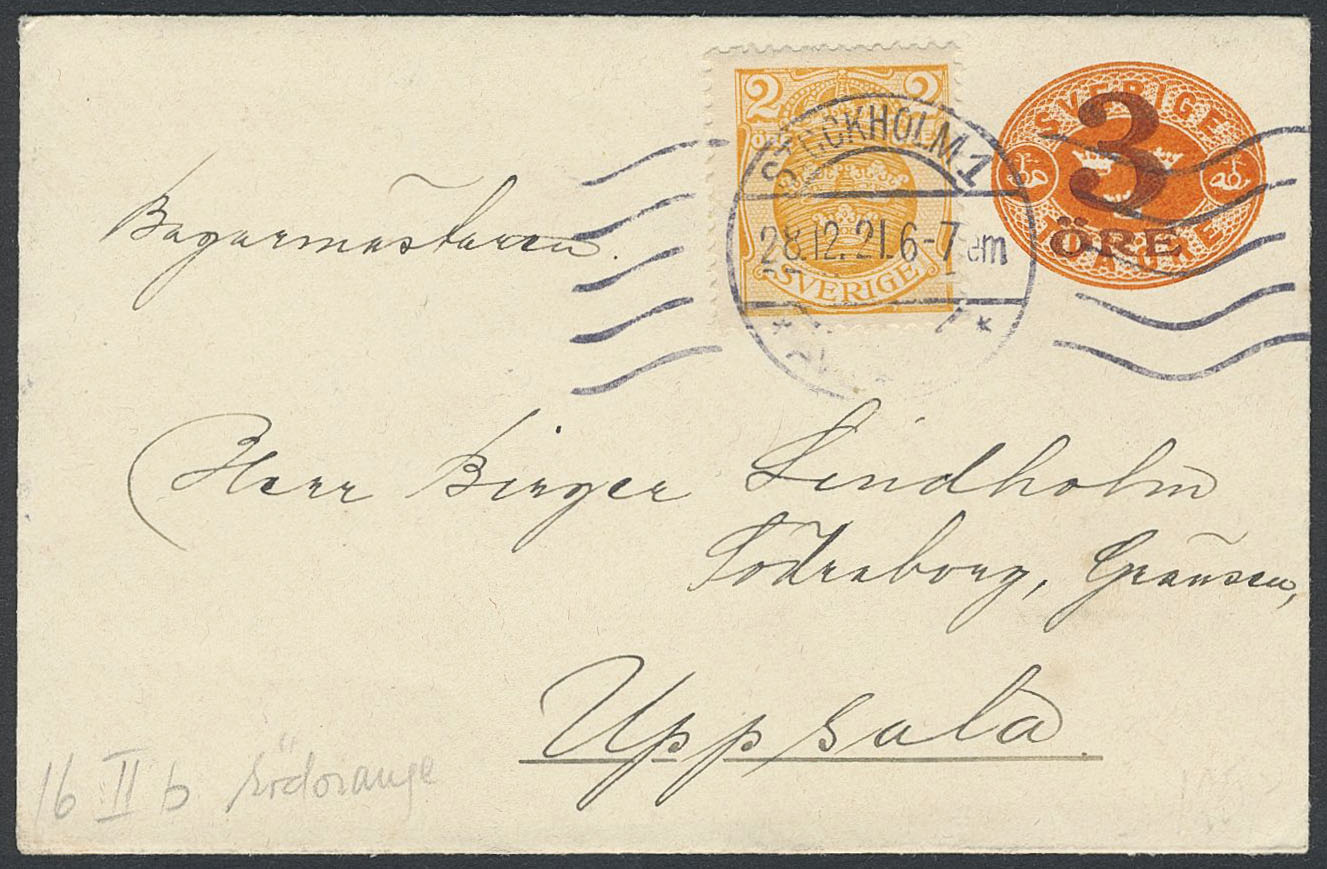 2 2
SVERIGE
STOCKHOLM 1
28.12.21.6-7 em
* *
SVERIGE
3
ÖRE
Bagarmästaren.
Herr Birger Lindholm
Söderborg, Gränsen,
Uppsala
16 II b rödorange